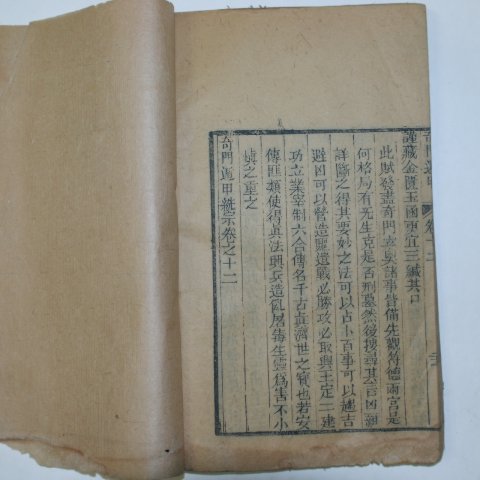 謹藏金匱玉函更宜三緘其口
此賦發盡奇門玄奥諸事皆備先觀符德兩宫是
何格局有无生克是否刑墓然後搜尋其吉凶細
詳斷之得其要妙之法可以占小百事可以趋吉
避凶可以營造罷遺戰必勝攻必取興王定一建
功立業宰制六合傳名千古真濟世之寳也若安
傳匪類使得真法興兵造亂屠毒生靈爲害不小
慎之重之
奇門遁甲統宗卷之十二